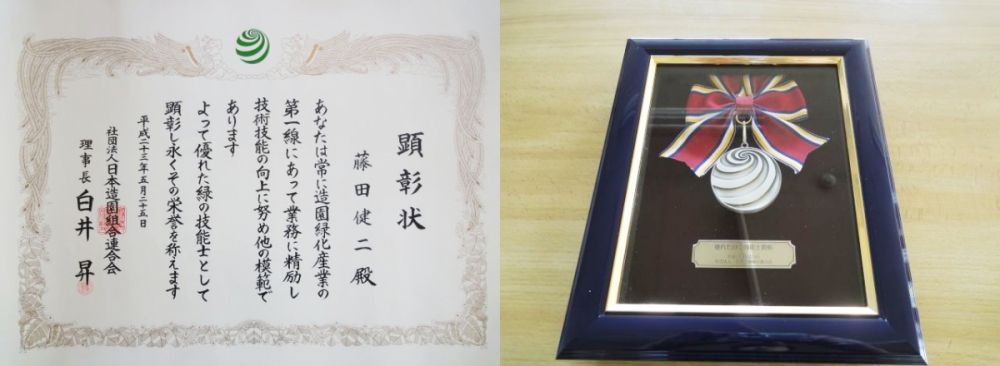 顕彰状
藤田健二殿
あなたは常に造園緑化産業の
第一線にあって業務に精励し
技術技能の向上に努め他の模範で
あります
よって優れた緑の技能士として
顕彰し永くその栄誉を称えます
平成二十三年五月二十五日
社団法人日本造園組合連合会
理事長 白井昇